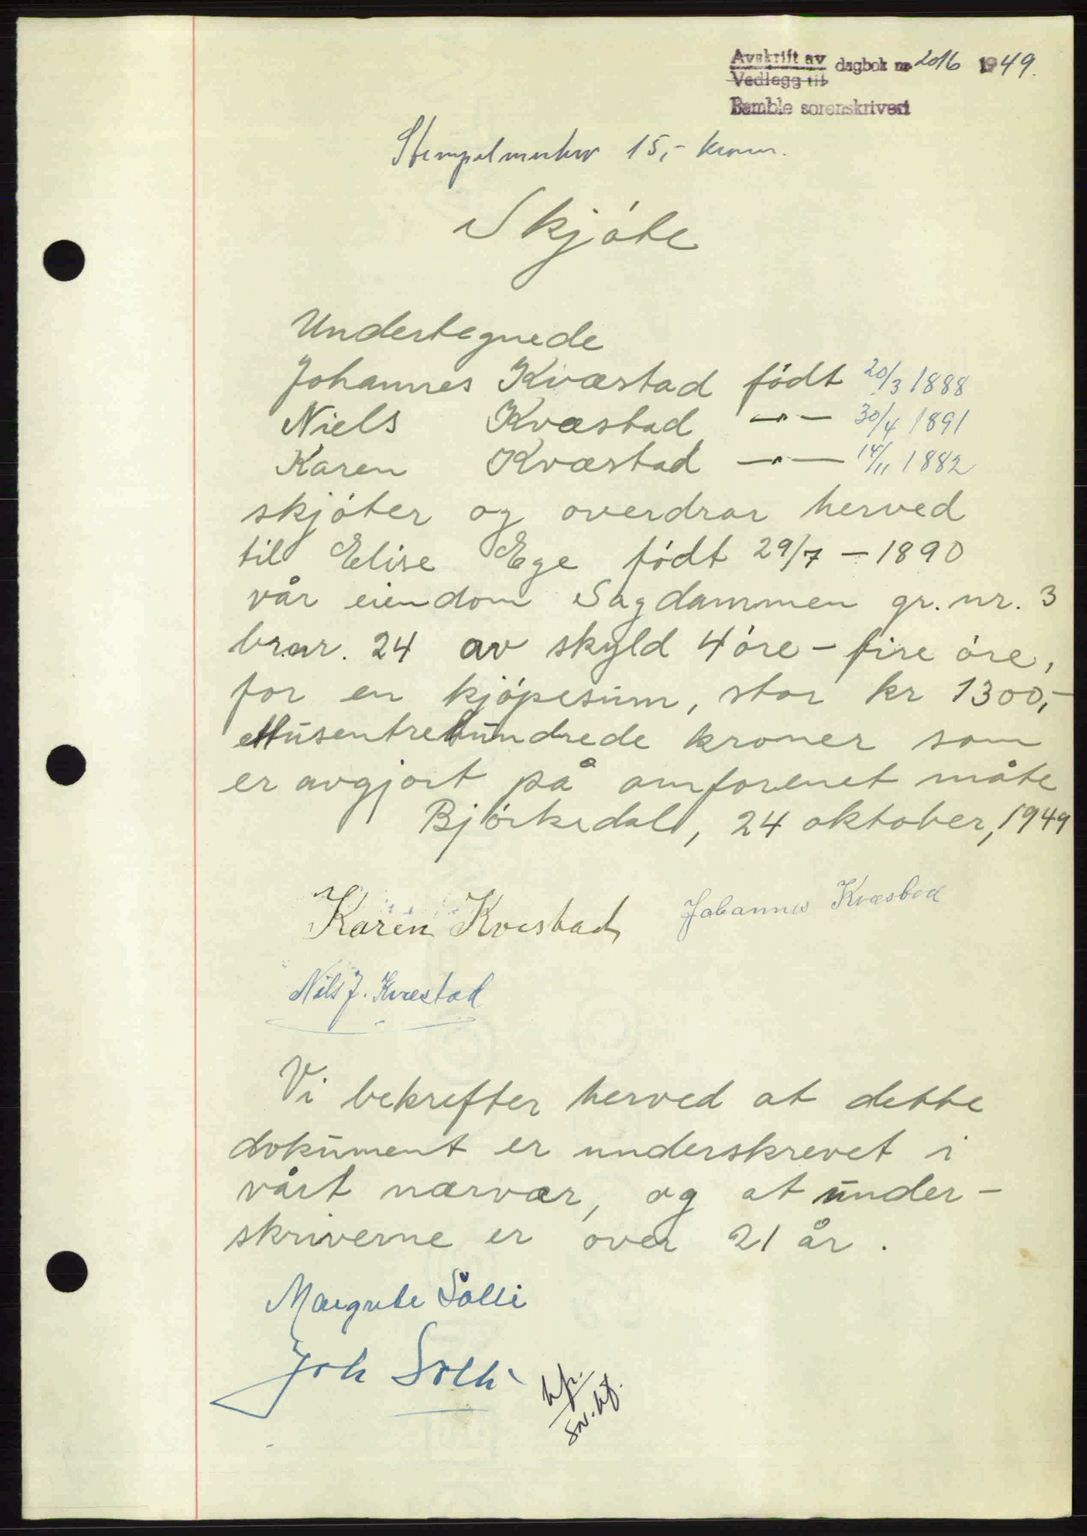 Avskrift av
Vedlegg til
dagbok nr 2016 1949.
Bamble sorenskriveri
Stempelmerker 15,- kroner.
Skjóte
Undertegnede
Johannes Kvæstad födt 20/3 1888
Niels Kvæstad —"— 30/4 1891
Karen Kvæstad —"— 14/11 1882
skjóter og overdrar herved
til Elise Ege fódt 29/7 - 1890
vår eiendom Sagdammen gr. nr. 3
br.nr. 24 av skyld 4 óre - fire óre,
for en kjópesum, stor kr 1300,-
ettusentrehundrede kroner som
er avgjort på omforenet måte
Bjórkedal, 24 oktober, 1949
Karen Kvestad Johannes Kvæstad
Nils J. Kvæstad
Vi bekrefter herved at dette
dokument er underskrevet i
vårt nærvær, og at under-
skriverne er over 21 år.
Margrete Solli
Joh Solli